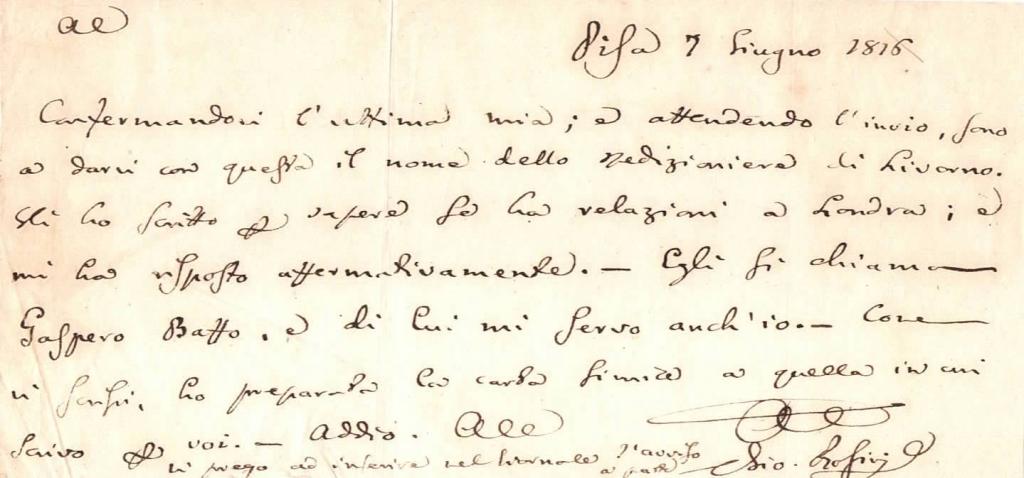 Pisa 7 Giugno 1816
Confermandovi l'ultima mia; e attendendo l'invio, sono
a darvi con questa il nome dello spedizioniere di Livorno.
Gli ho scritto p sapere se ha relazioni a Londra; e
mi ha risposto affermativamente. — Egli si chiama
Gaspero Batto, e di lui mi servo anch'io. — Come
vi scrissi, ho preparata la carta simile a quella in cui
scrivo p voi. — Addio.
vi prego ad inserire nel Giornale l'avviso
Gio. Rosini